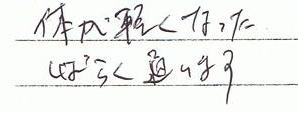 体が軽くなった
しばらく通います